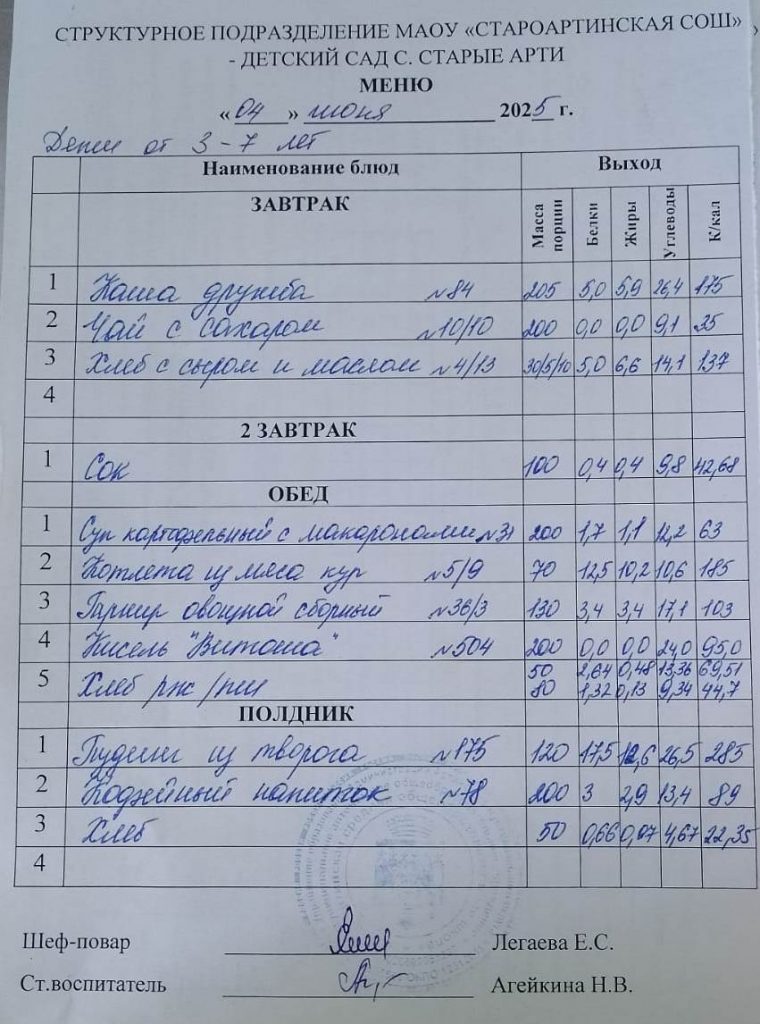 СТРУКТУРНОЕ ПОДРАЗДЕЛЕНИЕ МАОУ «СТАРОАРТИНСКАЯ СОШ»
- ДЕТСКИЙ САД С. СТАРЫЕ АРТИ
МЕНЮ
« 04 » июня 2025 г.
Дети от 3-7 лет
Наименование блюд Выход
ЗАВТРАК Масса порции Белки Жиры Углеводы К/кал
1 Каша дружба №84 205 5,0 5,9 26,4 175
2 Чай с сахаром №10/10 200 0,0 0,0 9,1 35
3 Хлеб с сыром и маслом №4/13 30/5/10 5,0 6,6 14,1 137
4
2 ЗАВТРАК
1 Сок 100 0,4 0,4 9,8 42,68
ОБЕД
1 Суп картофельный с макаронами №31 200 1,7 1,1 12,2 63
2 Котлета из мяса кур №5/9 70 12,5 10,2 10,6 185
3 Гарнир овощной сборный №36/3 130 3,4 3,4 17,1 103
4 Кисель "Витоша" №504 200 0,0 0,0 24,0 95,0
50 2,64 0,48 13,36 69,51
5 Хлеб рж/пш 80 1,32 0,13 9,34 44,7
ПОЛДНИК
1 Пудинг из творога №175 120 17,5 12,6 26,5 285
2 Кофейный напиток №78 200 3 2,9 13,4 89
3 Хлеб 50 0,66 0,07 4,67 22,35
4
Шеф-повар Легаева Е.С.
Ст.воспитатель Агейкина Н.В.